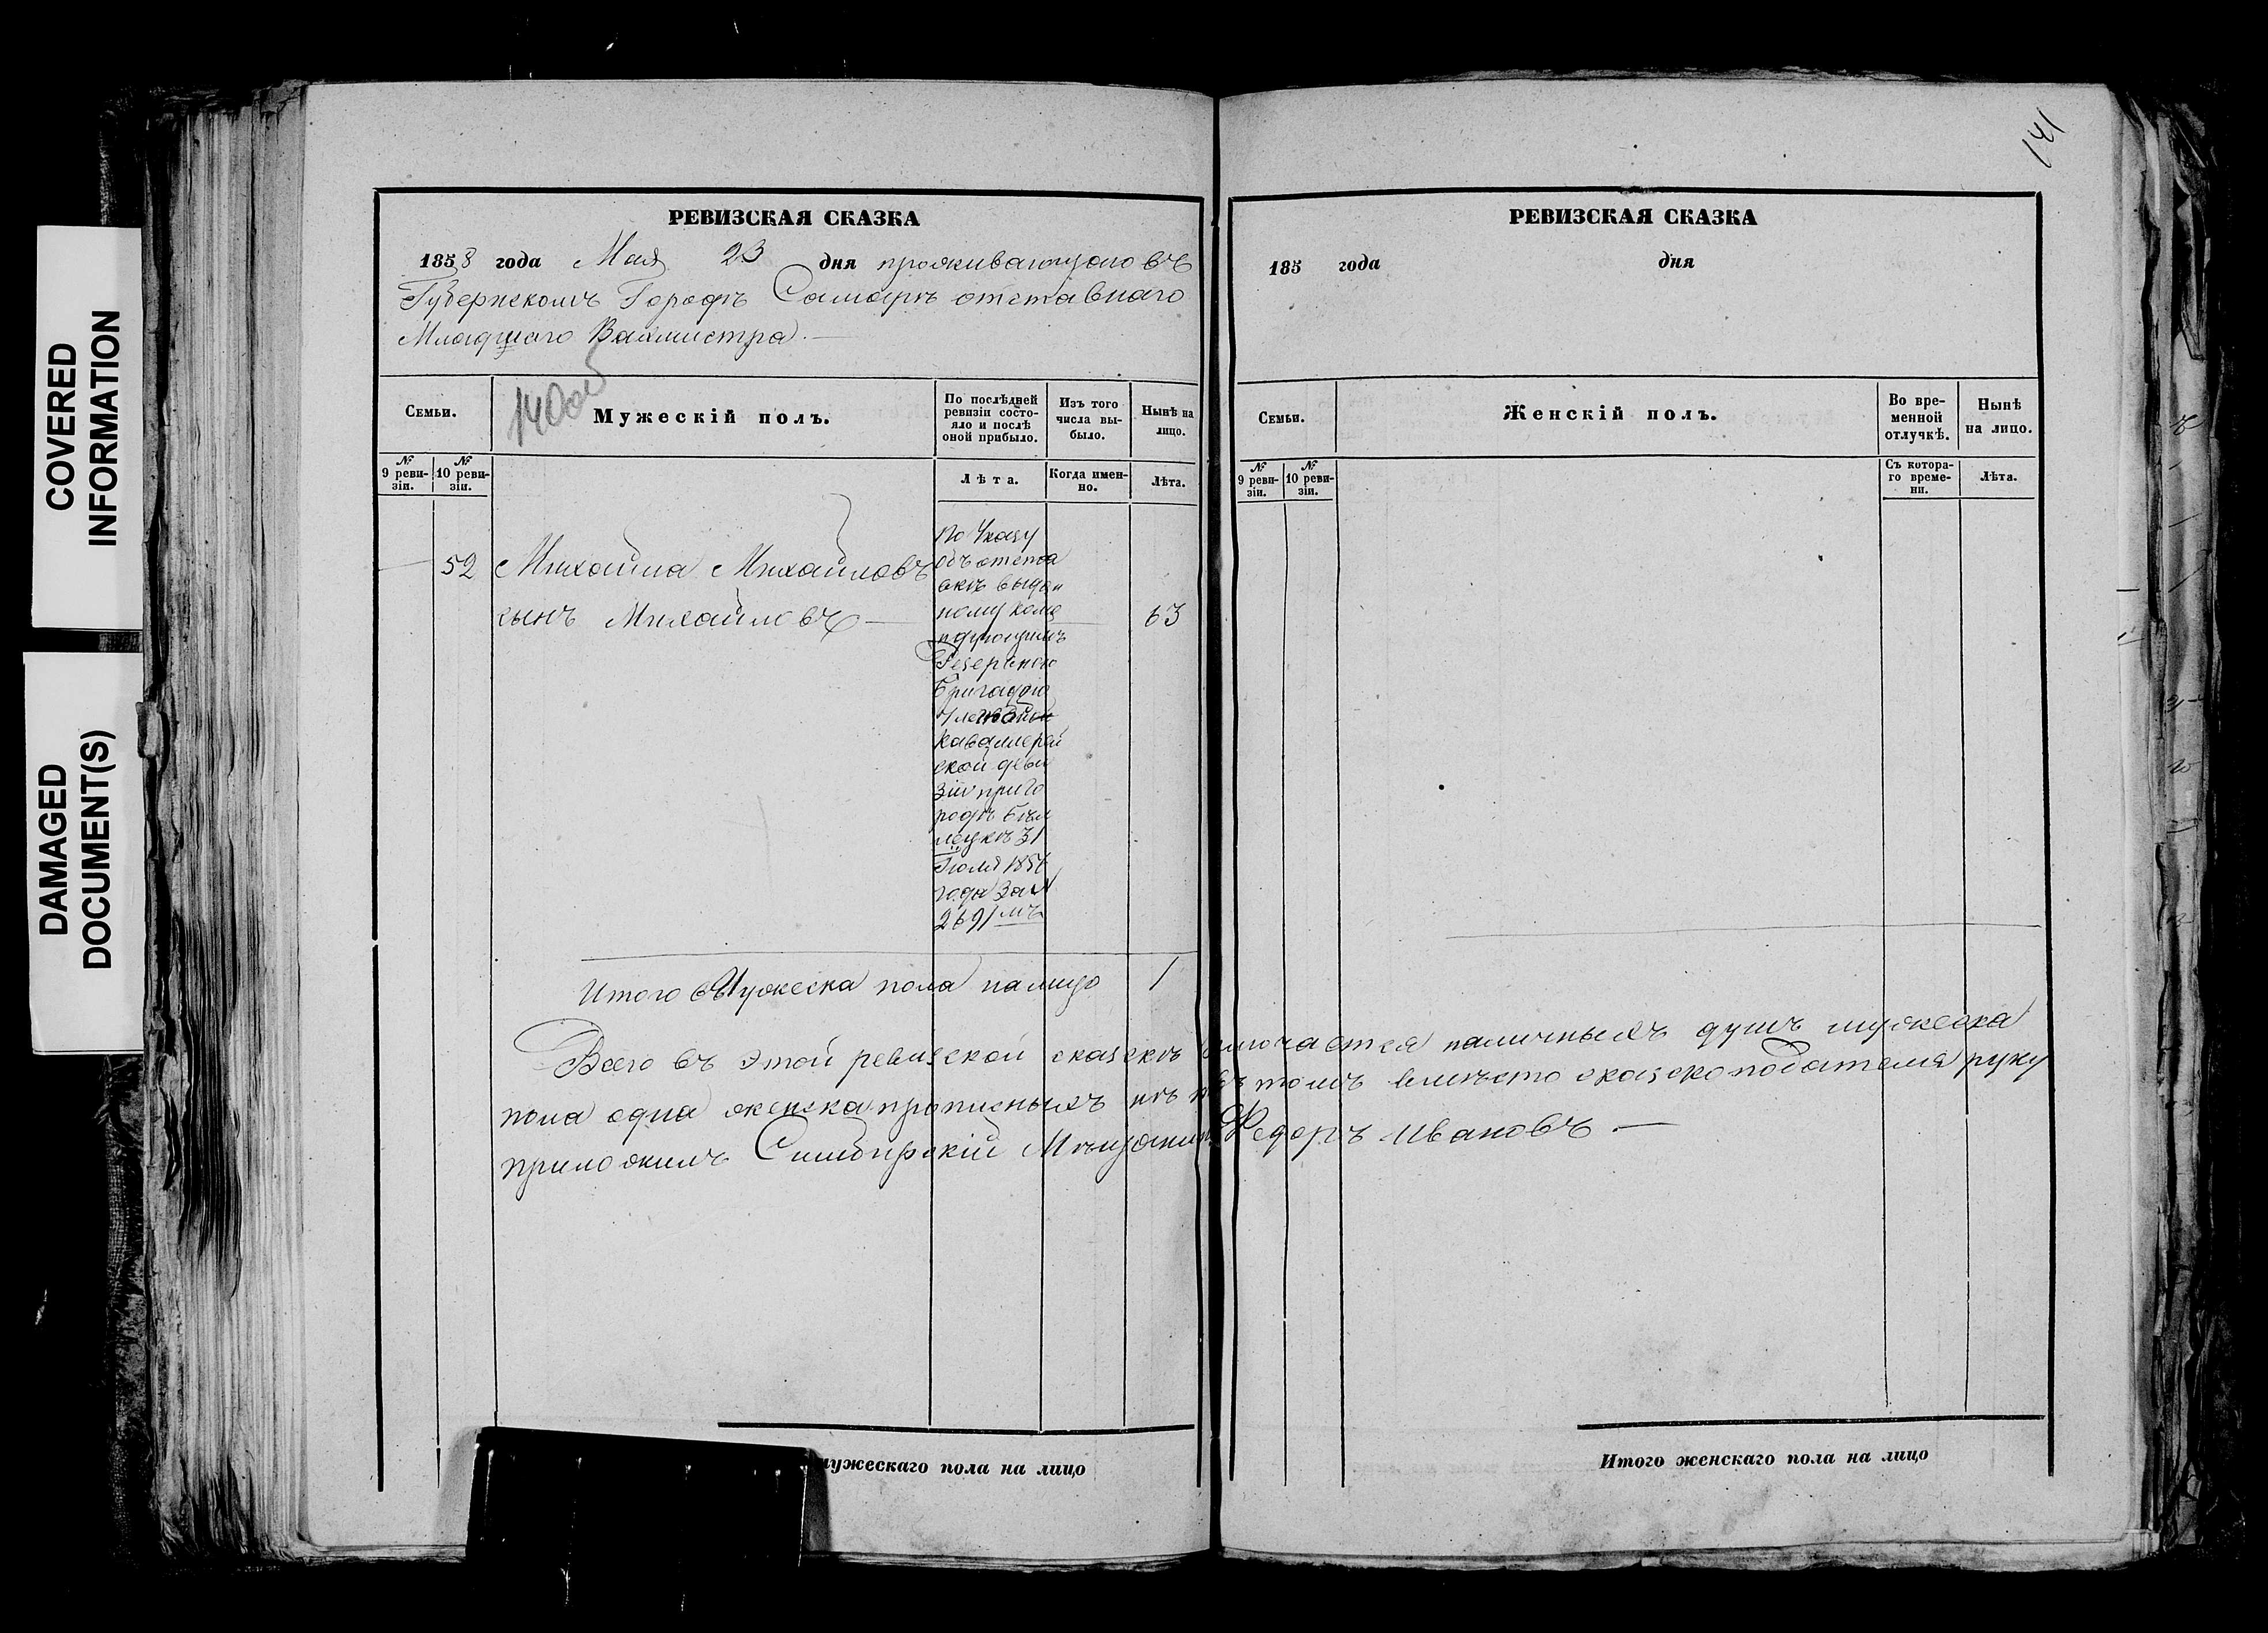 COVERED
INFORMATION
DAMAGED
DOCUMENT(S)
РЕВИЗСКАЯ СКАЗКА
1858 года Мая 23 дня проживающаго въ
Губернскомъ Городѣ Самарѣ отставнаго
Младшаго Вахмистра.—
140об
Семьи.
Мужескій полъ.
По послѣдней
ревизіи состо-
яло и послѣ
оной прибыло.
Изъ того
числа вы-
было.
Нынѣ на
лицо.
№
9 реви-
зіи.
№
10 реви-
зіи.
Лѣта.
Когда имен-
но.
Лѣта.
52 Михайла Михайловъ
сынъ Михайловъ — 63
По Указу
объ отста
вкѣ выдан
ному кома
ндующимъ
Резервною
Бригадою
кавалерей
ской диви
зіи при го
родѣ
31
Іюля
года за №
2691мъ
Итого Мужеска пола налицо 1
Всего въ этой ревизской сказкѣ включается наличныхъ душъ мужеска
пола одна женска прописныхъ нѣтъ въ томъ вмѣсто сказкоподателя руку
приложилъ Симбирскій Мѣщанинъ Федоръ Ивановъ —
мужескаго пола на лицо
141
РЕВИЗСКАЯ СКАЗКА
185 года дня
Семьи.
Женскій полъ.
Во вре-
менной
отлучкѣ.
Нынѣ
на лицо.
№
9 реви-
зіи.
№
10 реви-
зіи.
Съ котора-
го време-
ни.
Лѣта.
Итого женскаго пола на лицо